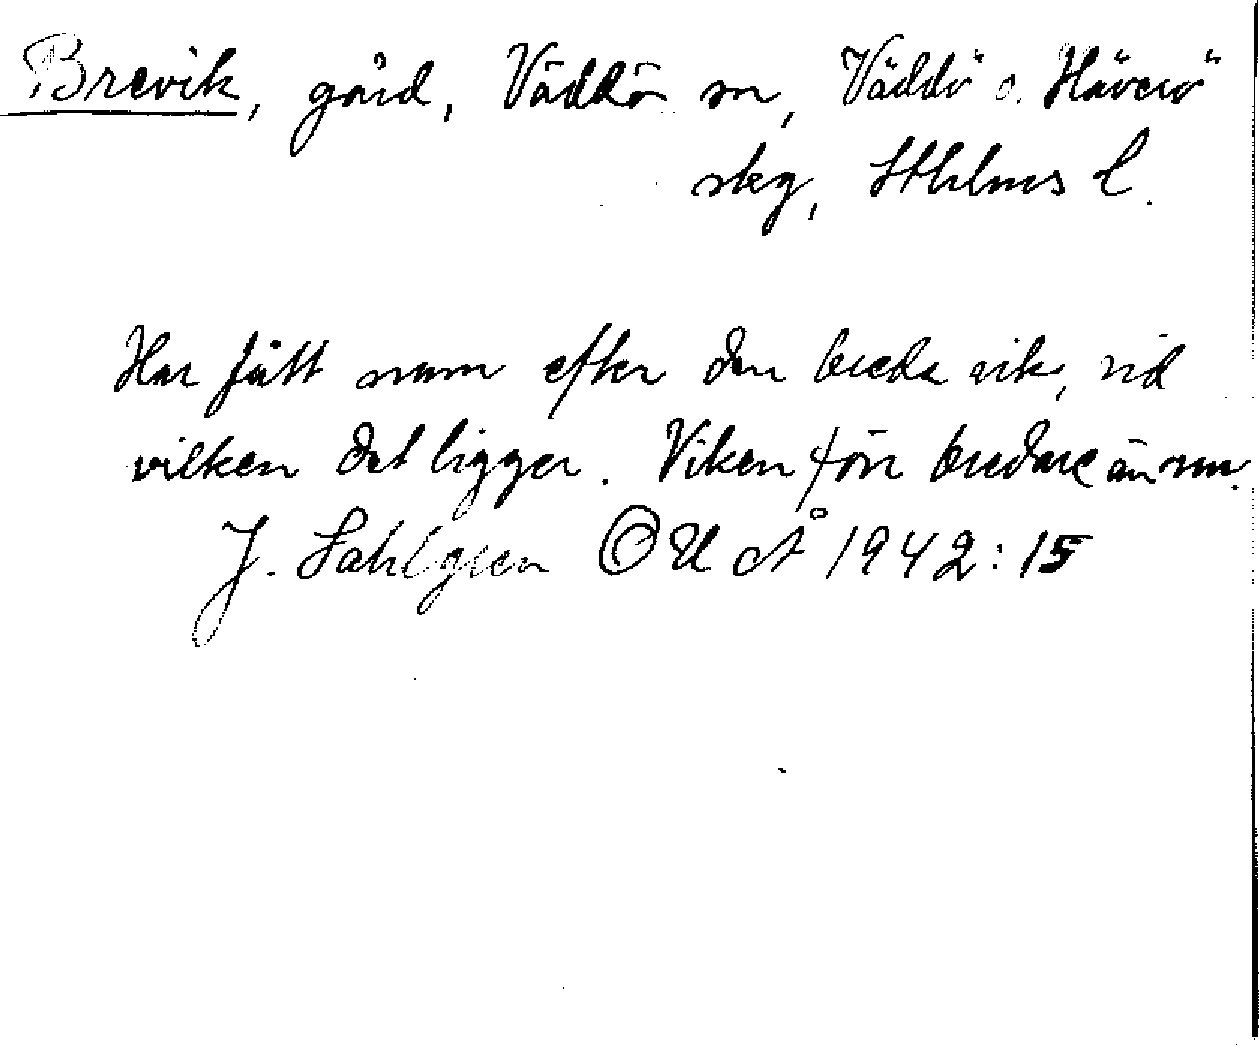 Brevik, gård, Väddö sn, Väddö o. Häverö
skg, Sthlms l.
Har fått namn efter den breda vik, vid
vilken det ligger. Viken förr bredare än nu.
J. Sahlgren OUÅ 1942:15